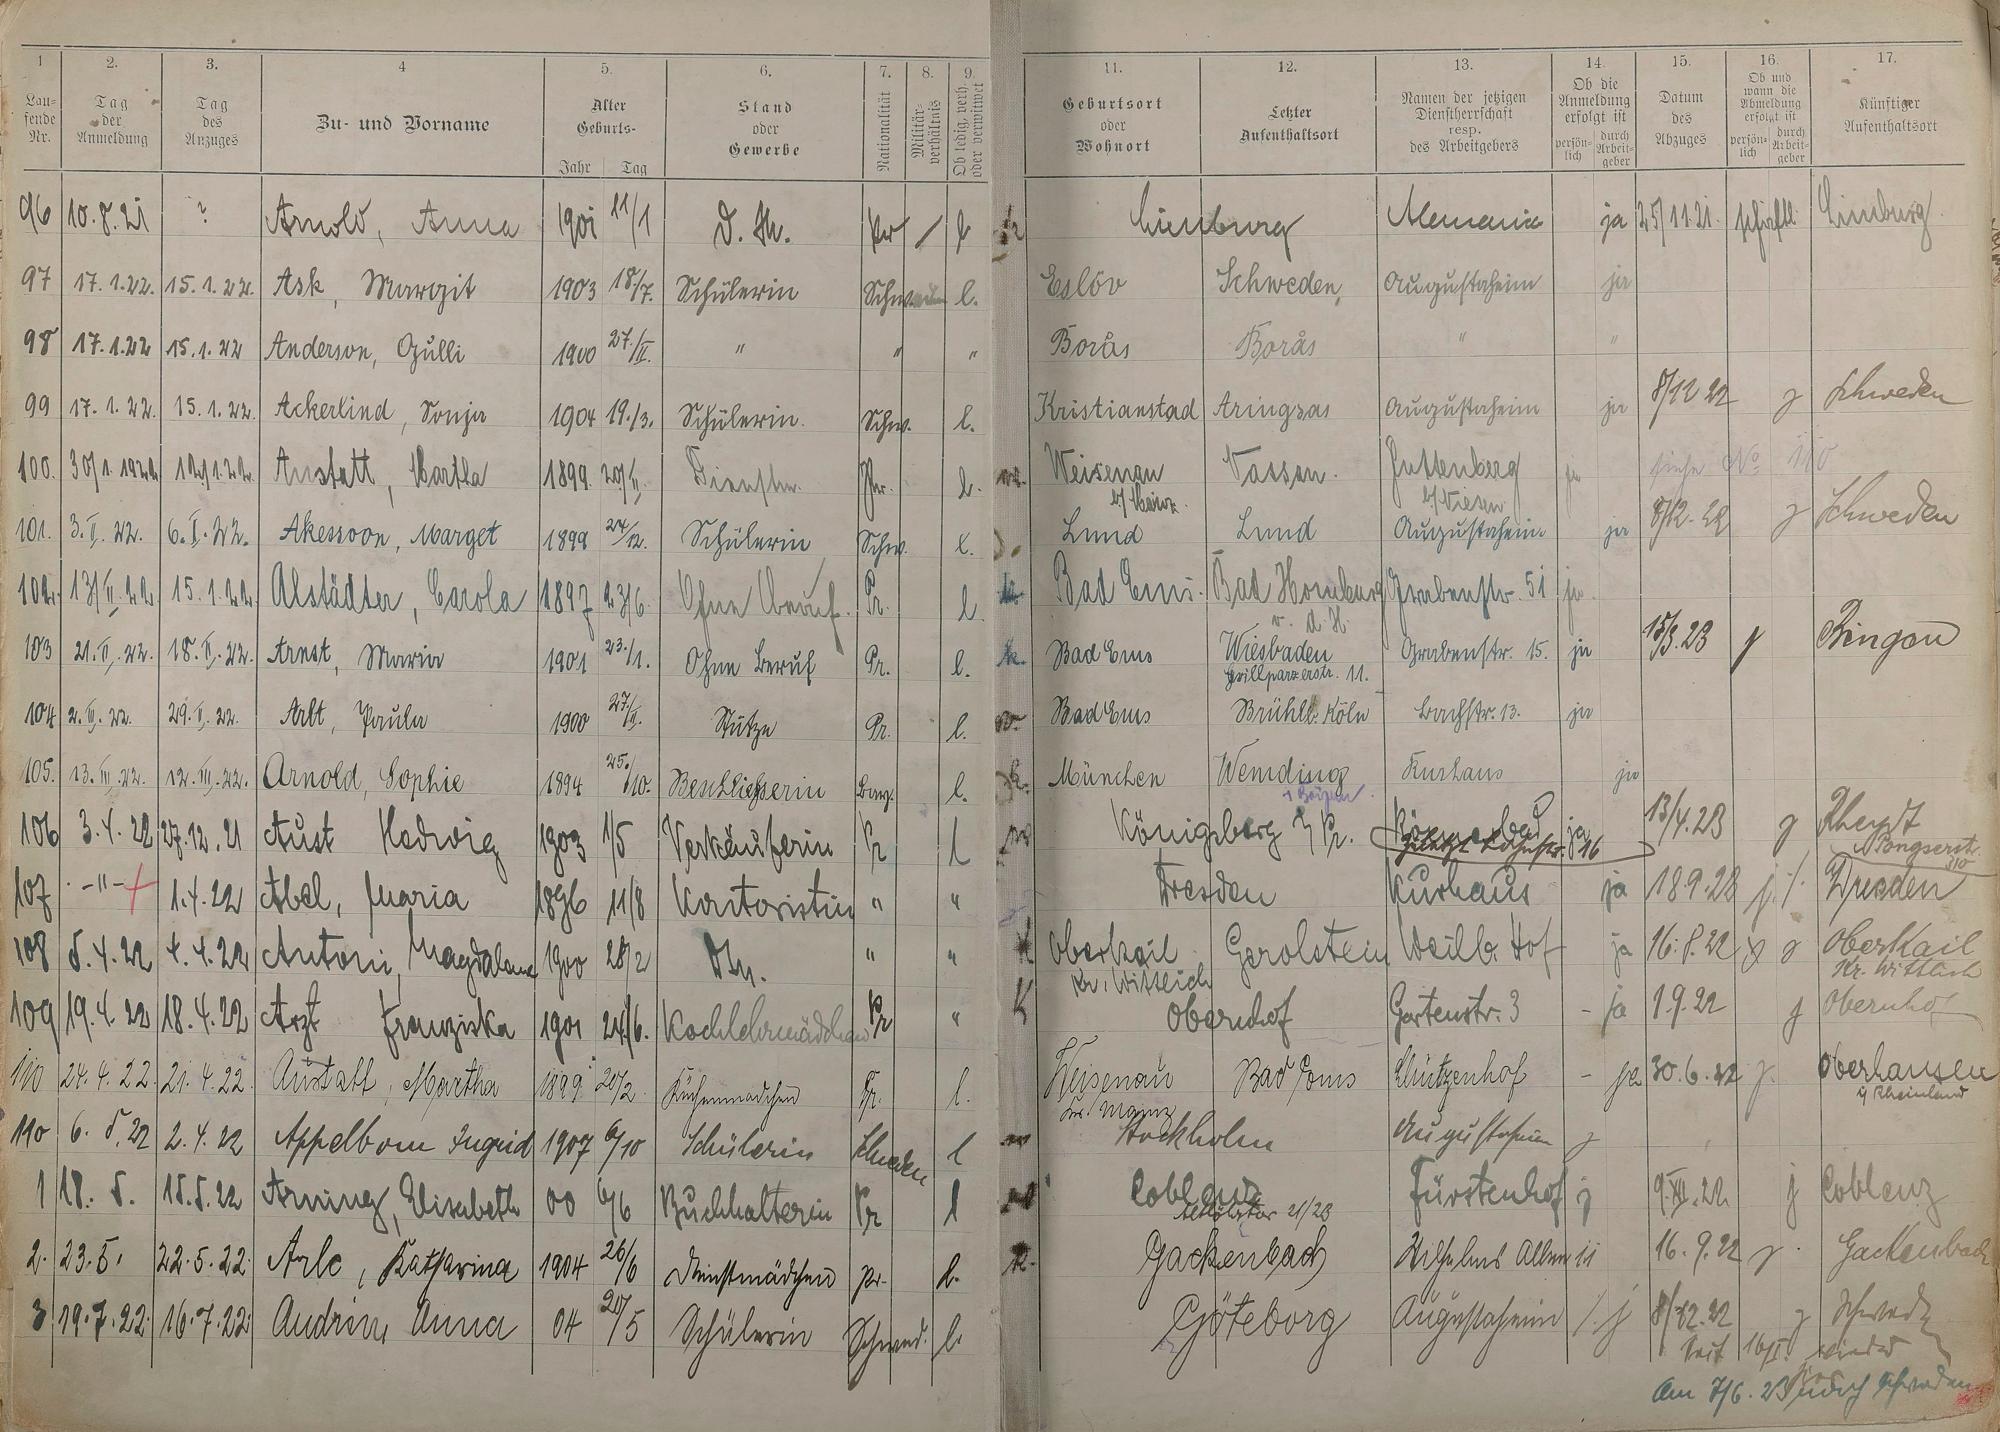 1 2. 3. 4 5. 6. 7. 8. 9. 11. 12. 13. 14. 15. 16. 17.
Laufende Nr. Tag der Anmeldung Tag des Anzuges Zu- und Vorname Alter Geburts- Jahr Tag Stand oder Gewerbe Nationalität Militärverhältnis Ob ledig, verh. oder verwitwet Geburtsort oder Wohnort Letzter Aufenthaltsort Namen der jetzigen Dienstherrschaft resp. des Arbeitgebers Ob die Anmeldung erfolgt ist persönlich durch Arbeitgeber Datum des Abzuges Ob und wann die Abmeldung erfolgt ist persönlich durch Arbeitgeber Künftiger Aufenthaltsort
96 10.8.21 ? Arnold, Anna 1901 11/1 D. M. Pr / l Limburg Alemania ja 25/11.21. schriftl. Limburg
97 17.1.22. 15.1.22. Ask, Margit 1903 18./7. Schülerin Schweden l. Eslöv Schweden, Augustaheim ja
98 17.1.22 15.1.22 Anderson, Gulli 1900 27./II. " " " Borås Borås " "
99 17.1.22. 15.1.22. Ackerlind, Sonja 1904 19./3. Schülerin. Schw. l. Kristianstad Aringsas Augustaheim ja 8/12 22 j Schweden
100. 30/1.1922 12/1.22. Anstatt, Martha 1899. 20/II. Dienstm. Pr. l. Weisenau Nassau. Guttenberg ja siehe No 110
b/ Mainz. b/ Niesen
101. 3.II.22. 6.I.22. Akessoon, Marget 1899 24/12. Schülerin Schw. l. Lund Lund Augustaheim ja 8/12.22 j Schweden
102. 13/II.22 15.1.22 Alstädter, Carola 1897 23/6. Ohne Beruf. Pr. l. Bad Ems. Bad Homburg Grabenstr. 51 ja.
v. d. H.
103 21.II.22. 18.II.22. Arnst, Maria 1901 23./1. Ohne Beruf Pr. l. k. Bad Ems Wiesbaden Grabenstr. 15. ja 15/3.23 j Bingen
Grillparzerstr. 11.
104 2.III.22. 29.I.22. Arbt, Paula 1900 27/II. Stütze Pr. l. Bad Ems Brühl b. Köln Bachstr. 13. ja
105. 13.III.22. 12.III.22. Arnold, Sophie 1894 25./10. Beschließerin Bay. l. k. München Wemding Kurhaus ja
i Bayern.
106 3.4.22 27.12.21 Aust Hedwig 1903 1/5 Verkäuferin Pr l Königsberg i/ Pr. Römerbad ja 13/4.23 g Rheydt
Pongserstr. 310
107 -"- 1.4.22 Abel, Maria 1896 11/8 Kontoristin " " Dresden Kurhaus ja 18.9.23 j. /. Dresden
108 5.4.22 4.4.22 Antoni, Magdalena 1900 28/2 Dm. " " K Oberkail Gerolstein Weilb. Hof ja 16.8.22 g Oberkail
Kr. Wittlich Kr. Wittlich
109 19.4.22 18.4.22 Arzt Franziska 1901 24/6. Kochlehrmädchen Pr " K Obernhof Gartenstr. 3 - ja 1.9.22 j Obernhof
110 24.4.22. 21.4.22. Anstatt, Martha 1899 20/2. Küchenmädchen Pr. l. Weisenau Bad Ems Schützenhof - ja 30.6.22 j. Oberhausen
Kr. Mainz i/ Rheinland
110 6.5.22 2.4.22 Appelbom Ingrid 1907 6/10 Schülerin Schweden l Stockholm Augustaheim j
1 18.5. 15.5.22 Arning, Elisabeth 00 6/6 Buchhalterin Pr l Coblenz Fürstenhof j 9.XII.22 j Coblenz
21/23
2. 23.5. 22.5.22. Arlc, Katharina 1904 26/6 Dienstmädchen pr. l. k. Gackenbach Wilhelms Allee 16.9.22 j. Gackenbach
3 19.7.22. 16.7.22. Andrin, Anna 04 20/5 Schülerin Schwed. l. Göteborg Augustaheim /. j 8/12.22 j Schweden
Seit 16/I. wieder hier
Am 7/6.23 nach Schweden